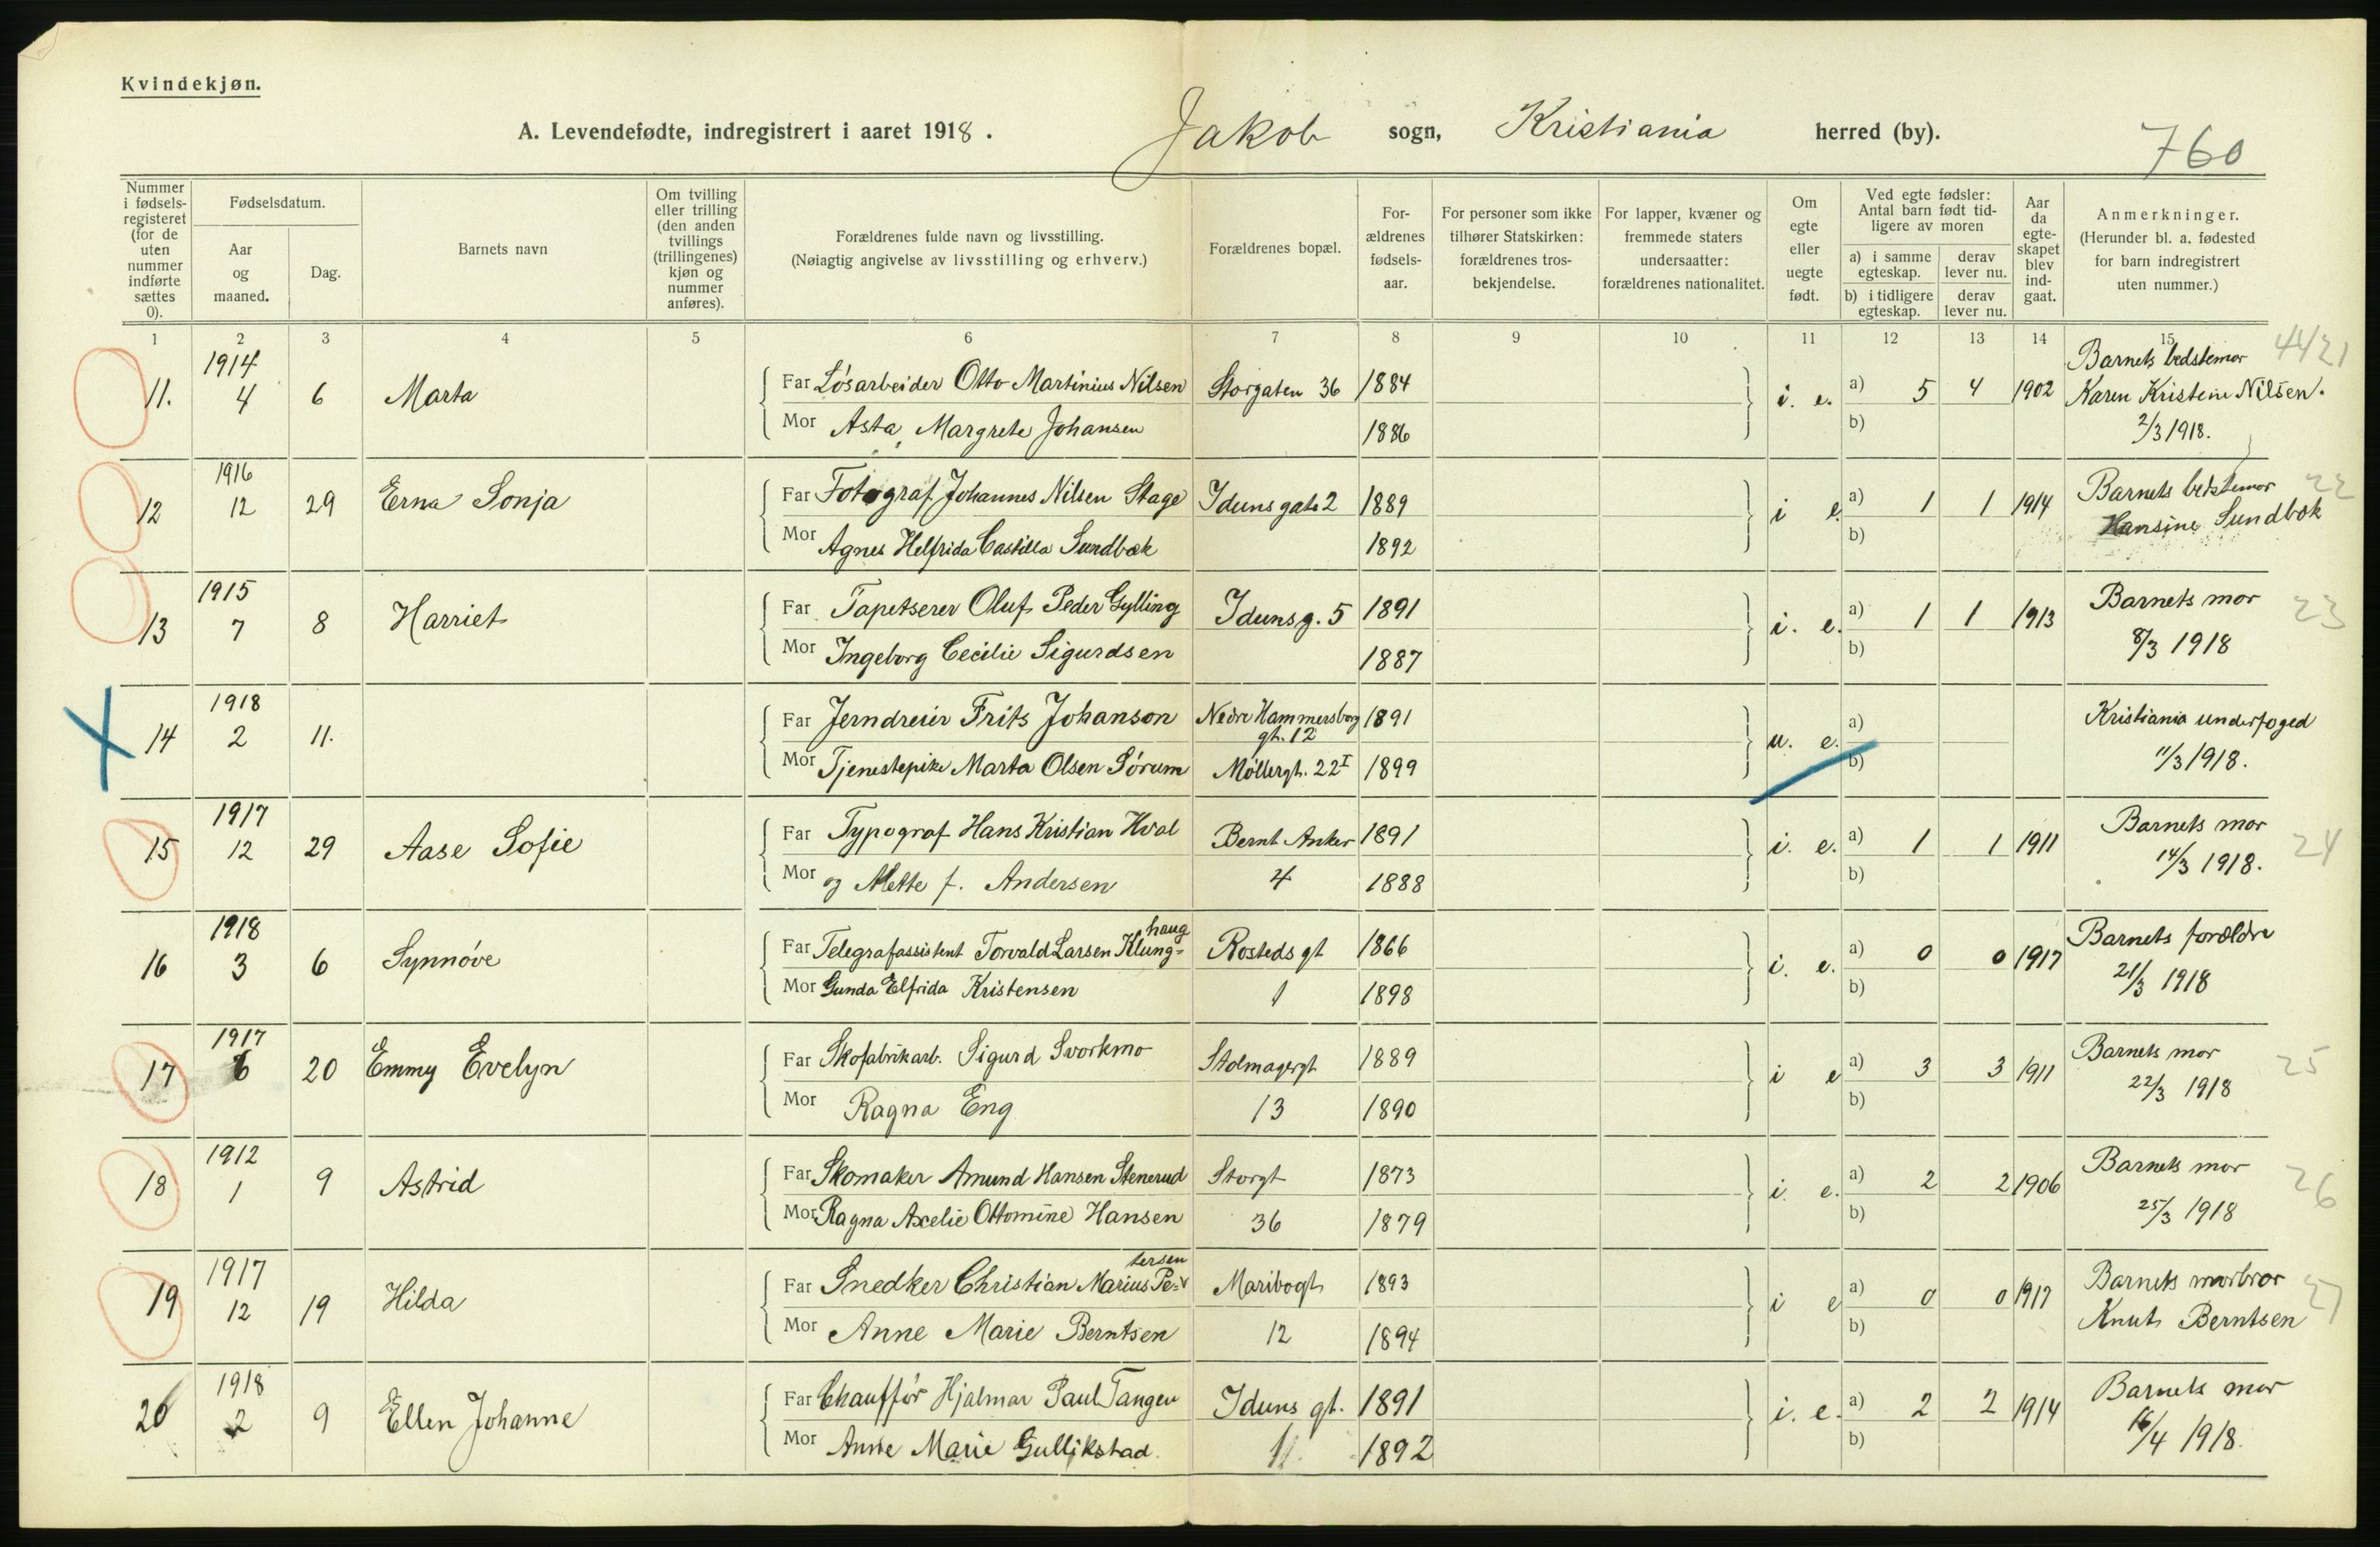 Kvindekjøn.
A. Levendefødte, indregistrert i aaret 1918. Jakob sogn, Kristiania herred (by).
760
Nummer i fødselsregisteret (for de uten nummer indførte sættes 0).
Fødselsdatum.
Aar og maaned.
Dag.
Barnets navn
Om tvilling eller trilling (den anden tvillings (trillingenes) kjøn og nummer anføres).
Forældrenes fulde navn og livsstilling.
(Nøiagtig angivelse av livsstilling og erhverv.)
Forældrenes bopæl.
Forældrenes fødselsaar.
For personer som ikke tilhører Statskirken: forældrenes trosbekjendelse.
For lapper, kvæner og fremmede staters undersaatter: forældrenes nationalitet.
Om egte eller uegte født.
Ved egte fødsler: Antal barn født tidligere av moren
a) i samme egteskap. derav lever nu.
b) i tidligere egteskap. derav lever nu.
Aar da egteskapet blev indgaat.
Anmerkninger.
(Herunder bl. a. fødested for barn indregistrert uten nummer.)
1 2 3 4 5 6 7 8 9 10 11 12 13 14 15
11. 1914 4 6 Marta
Far Løsarbeider Otto Martinius Nilsen Storgaten 36 1884
Mor Asta Margrete Johansen 1886
i. e. a) 5 4 1902
b)
Barnets bedstemor
Karen Kristine Nilsen.
2/3 1918.
4421
12 1916 12 29 Erna Sonja
Far Fotograf Johannes Nilsen Stage Idunsgate 2 1889
Mor Agnes Helfrida Castilla Sundbæk 1892
i e. a) 1 1 1914
b)
Barnets bedstemor
Hansine Sundbæk
22
13 1915 7 8 Harriet
Far Tapetserer Oluf Peder Gylling Idunsg. 5 1891
Mor Ingeborg Cecilie Sigurdsen 1887
i. e. a) 1 1 1913
b)
Barnets mor
8/3 1918
23
14 1918 2 11.
Far Jerndreier Frits Johanson Nedre Hammersborg gt. 12 1891
Mor Tjenestepike Marta Olsen Sørum Møllergt. 22 I 1899
u. e. a)
b)
Kristiania underfoged
11/3 1918.
15 1917 12 29 Aase Sofie
Far Typograf Hans Kristian Hval Bernt Anker 1891
Mor og Mette f. Andersen 4 1888
i. e. a) 1 1 1911
b)
Barnets mor
14/3 1918.
24
16 1918 3 6 Synnøve
Far Telegrafassistent Torvald Larsen Klung=haug Rosteds gt 1866
Mor Gunda Elfrida Kristensen 1 1898
i. e. a) 0 0 1917
b)
Barnets forældre
21/3 1918
17 1917 6 20 Emmy Evelyn
Far Skofabrikarb. Sigurd Svorkmo Stolmagergt 1889
Mor Ragna Eng 13 1890
i e a) 3 3 1911
b)
Barnets mor
22/3 1918
25
18 1912 1 9 Astrid
Far Skomaker Amund Hansen Stenerud Storgt 1873
Mor Ragna Axelie Ottomine Hansen 36 1879
i. e. a) 2 2 1906
b)
Barnets mor
25/3 1918
26
19 1917 12 19 Hilda
Far Snedker Christian Marius Pe=tersen Maribogt 1893
Mor Anne Marie Berntsen 12 1894
i e a) 0 0 1917
b)
Barnets morbror
Knut Berntsen
27
20 1918 2 9 Ellen Johanne
Far Chauffør Hjalmar Paul Tangen Iduns gt. 1891
Mor Anne Marie Gullikstad. 11. 1892
i. e. a) 2 2 1914
b)
Barnets mor
16/4 1918.